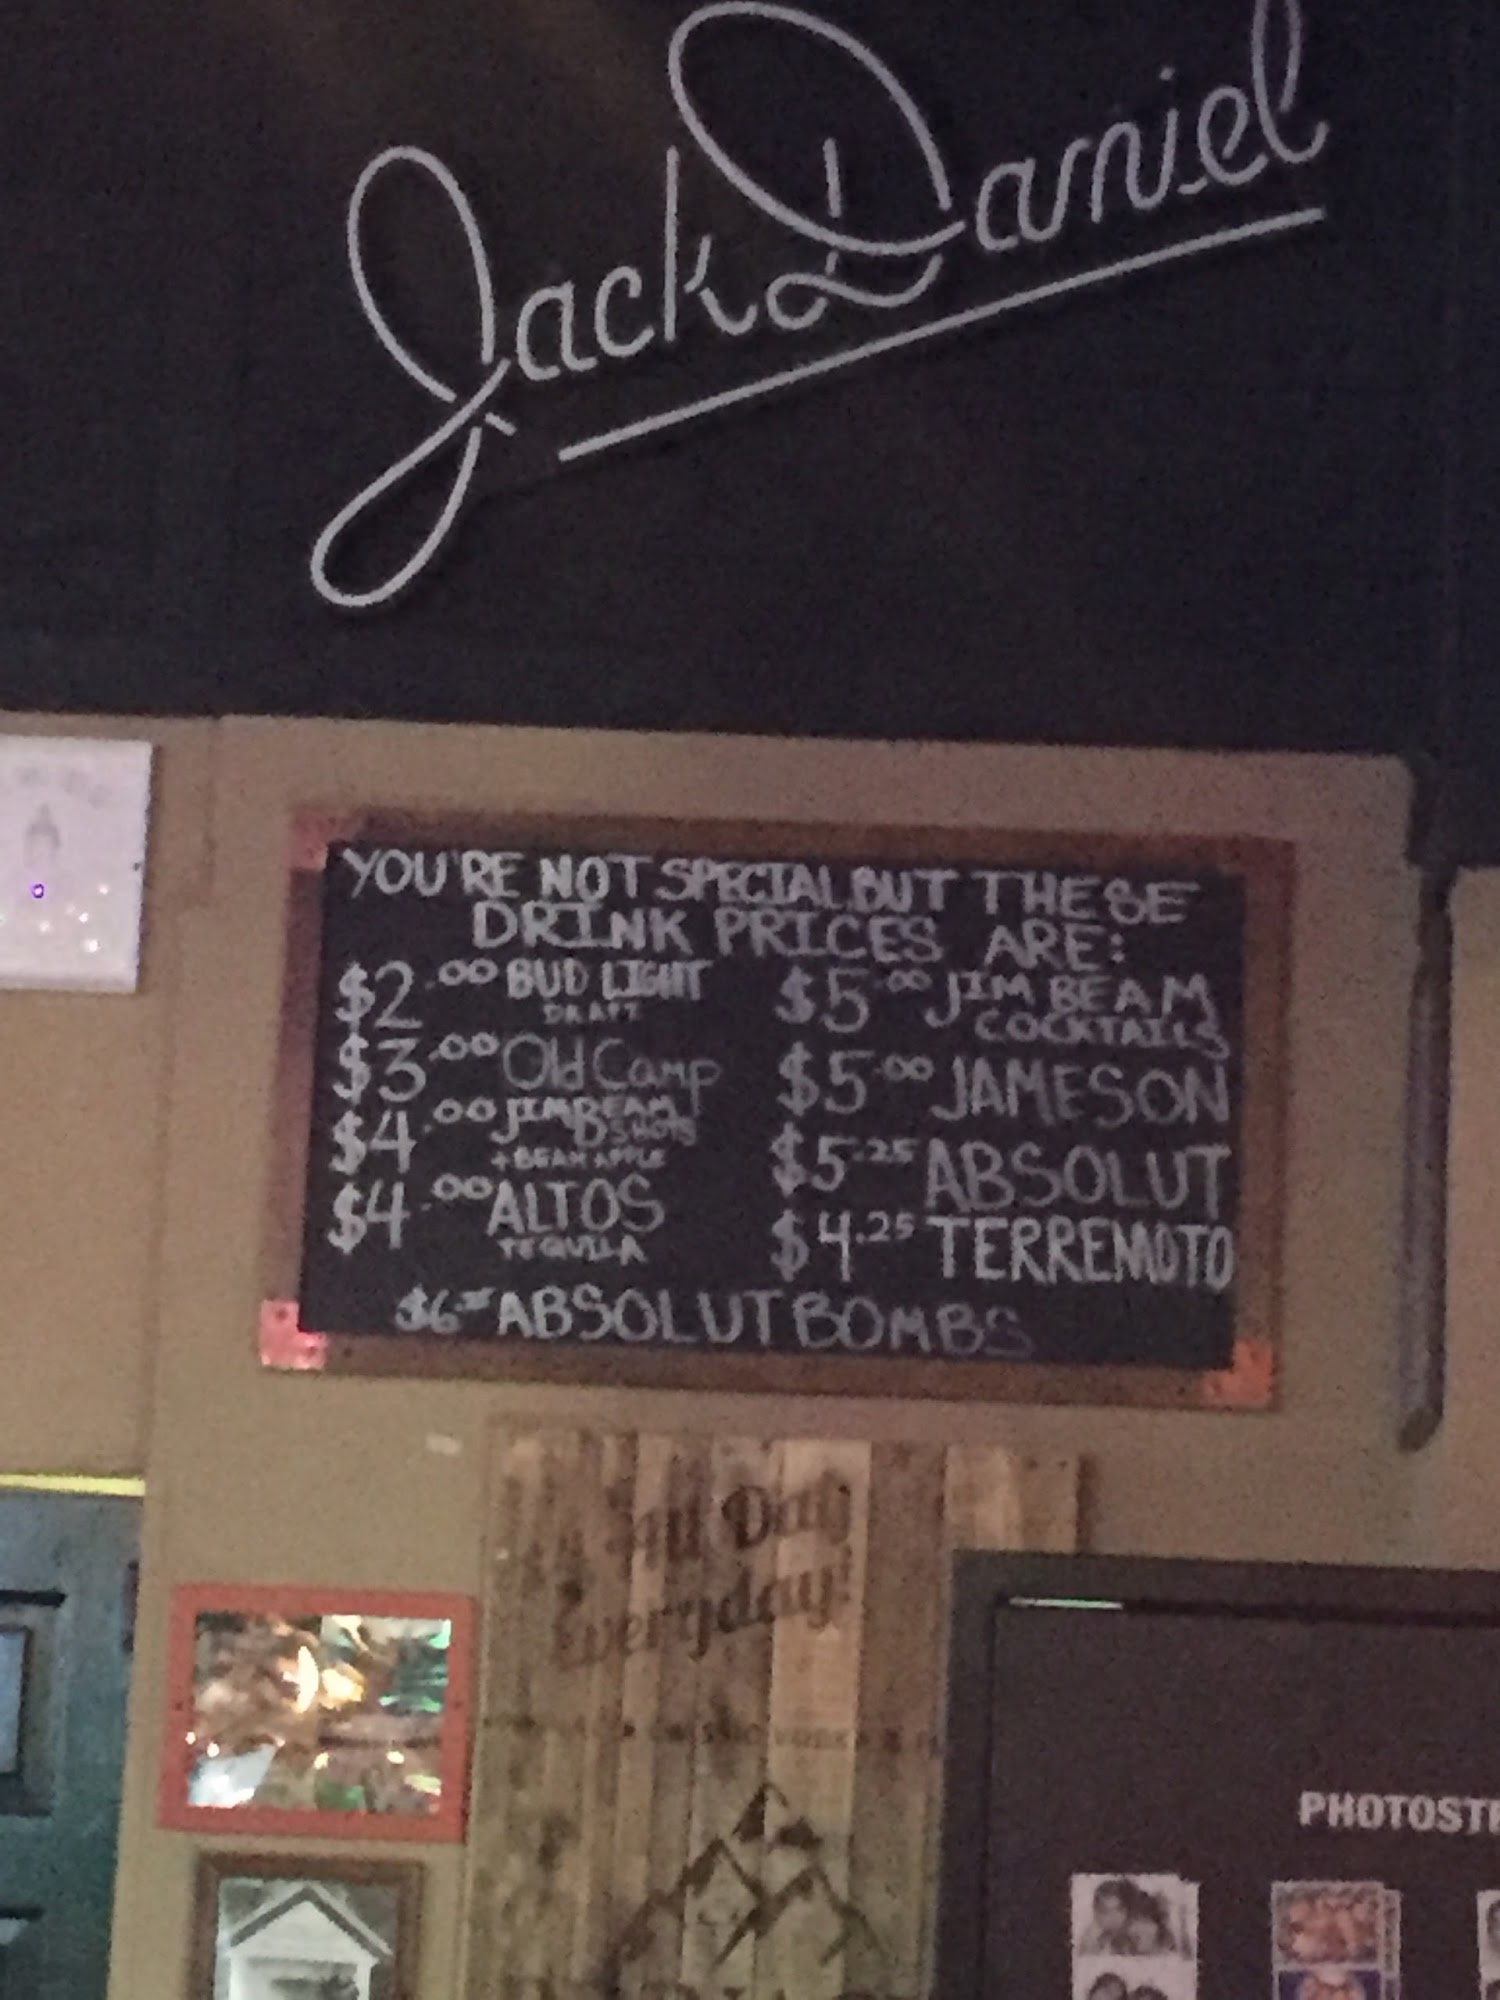 Jack Daniel
YOU'RE NOT SPECIAL.BUT THESE
DRINK PRICES ARE:
$2.00 BUD LIGHT
DRAFT
$3.00 Old Camp
$4.00 JIM BEAM
SHOTS
+ BEAM APPLE
$4.00 ALTOS
TEQUILA
$5.00 JIM BEAM
COCKTAILS
$5.00 JAMESON
$5.25 ABSOLUT
$4.25 TERREMOTO
ABSOLUT BOMBS
All Day
Everyday!